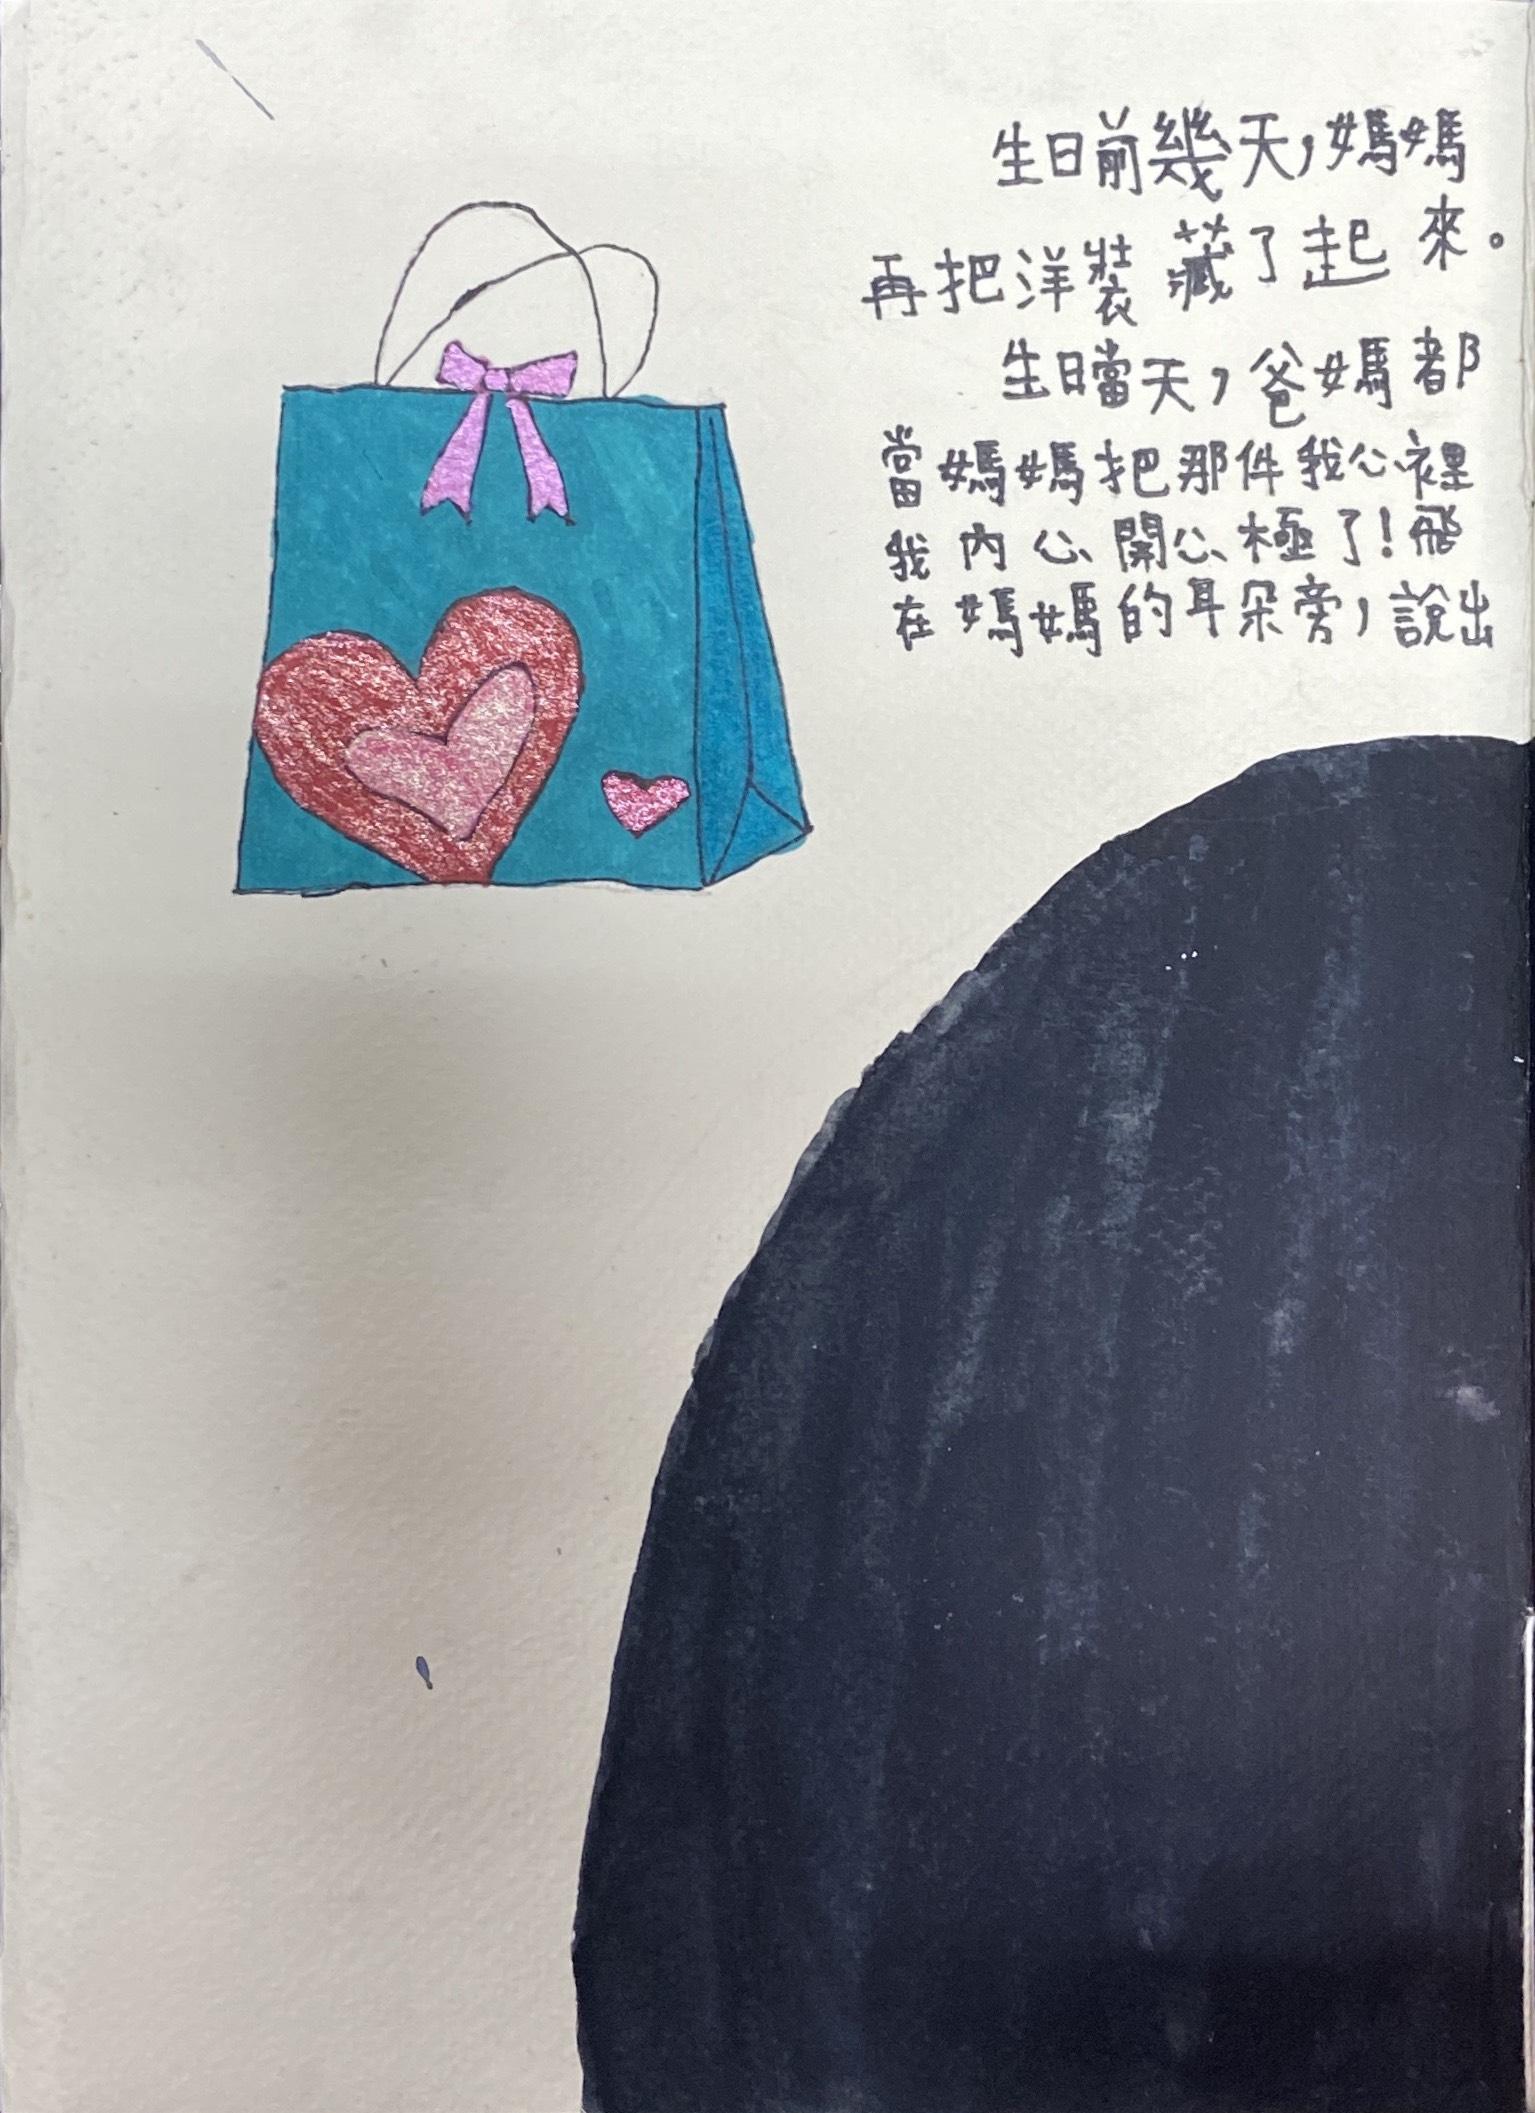 生日前幾天,媽媽
再把洋裝藏了起來。
生日當天,爸媽都
當媽媽把那件我心裡
我內心開心極了!飛
在媽媽的耳朵旁,說出